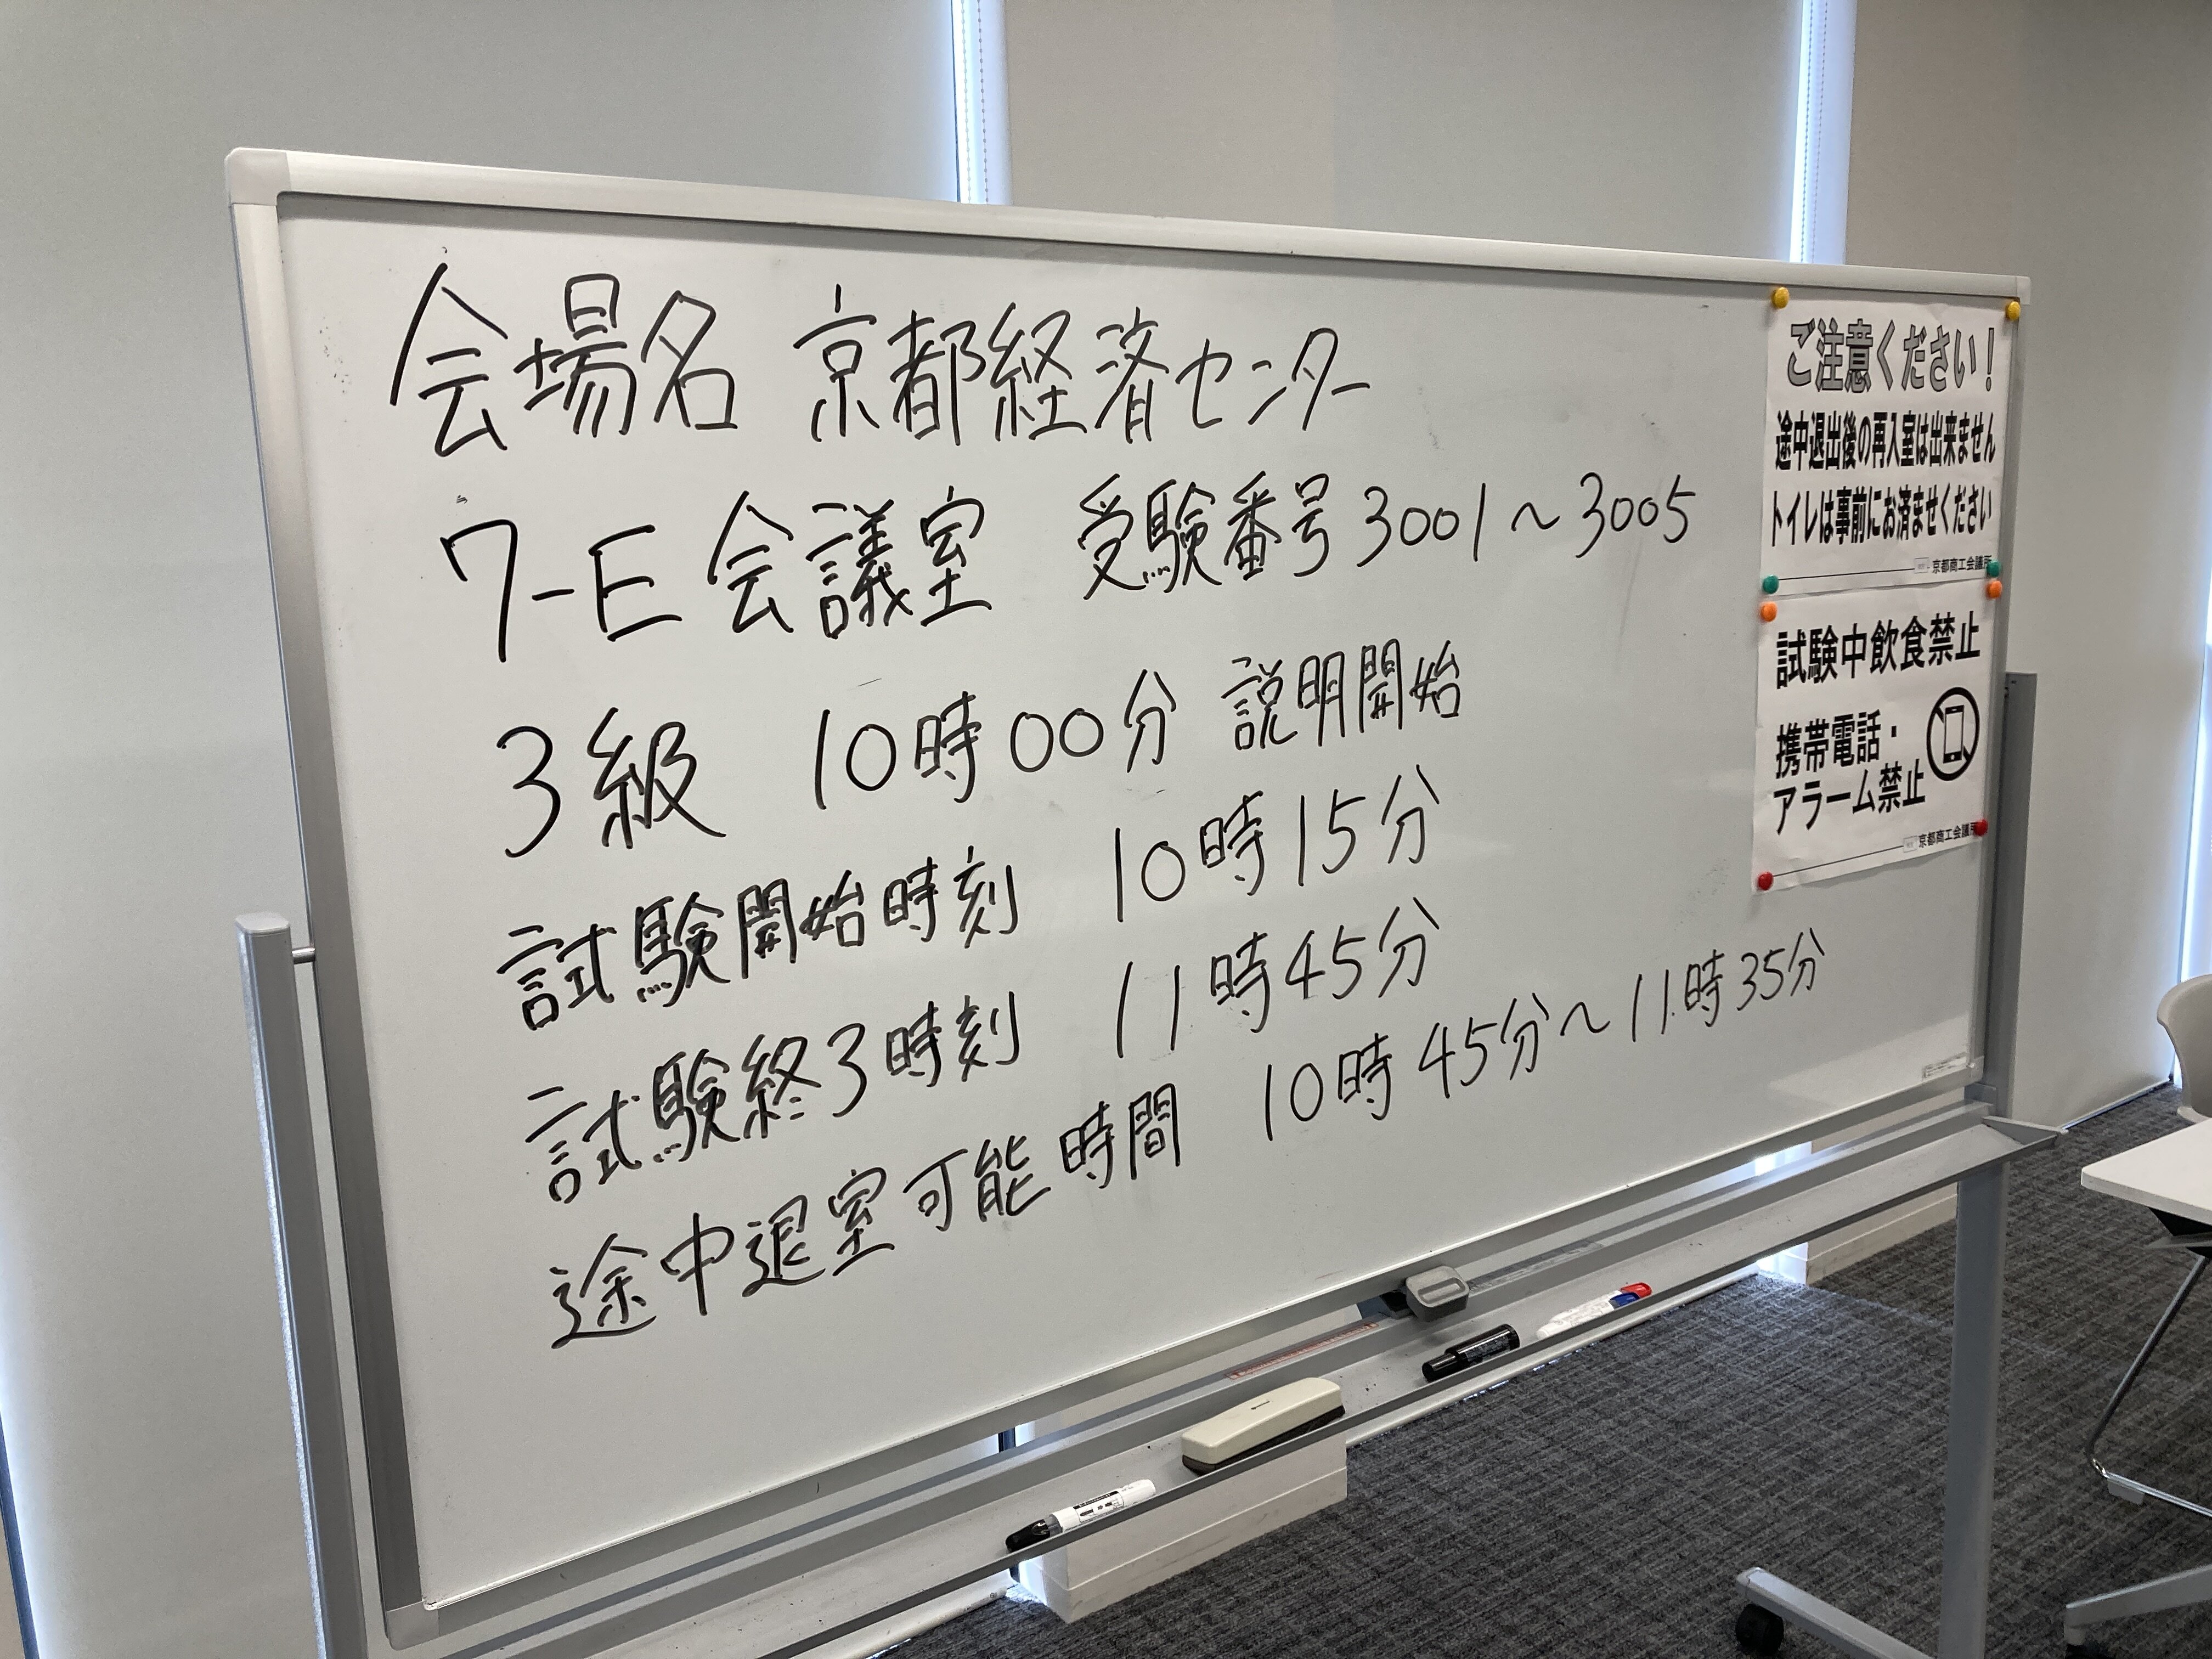 会場名 京都経済センター
7-E 会議室 受験番号 3001～3005
3級 10時00分 説明開始
試験開始時刻 10時15分
試験終了時刻 11時45分
途中退室可能時間 10時45分～11時35分
ご注意ください！
途中退出後の再入室は出来ません
トイレは事前にお済ませください
京都商工会議所
試験中飲食禁止
携帯電話・
アラーム禁止
京都商工会議所